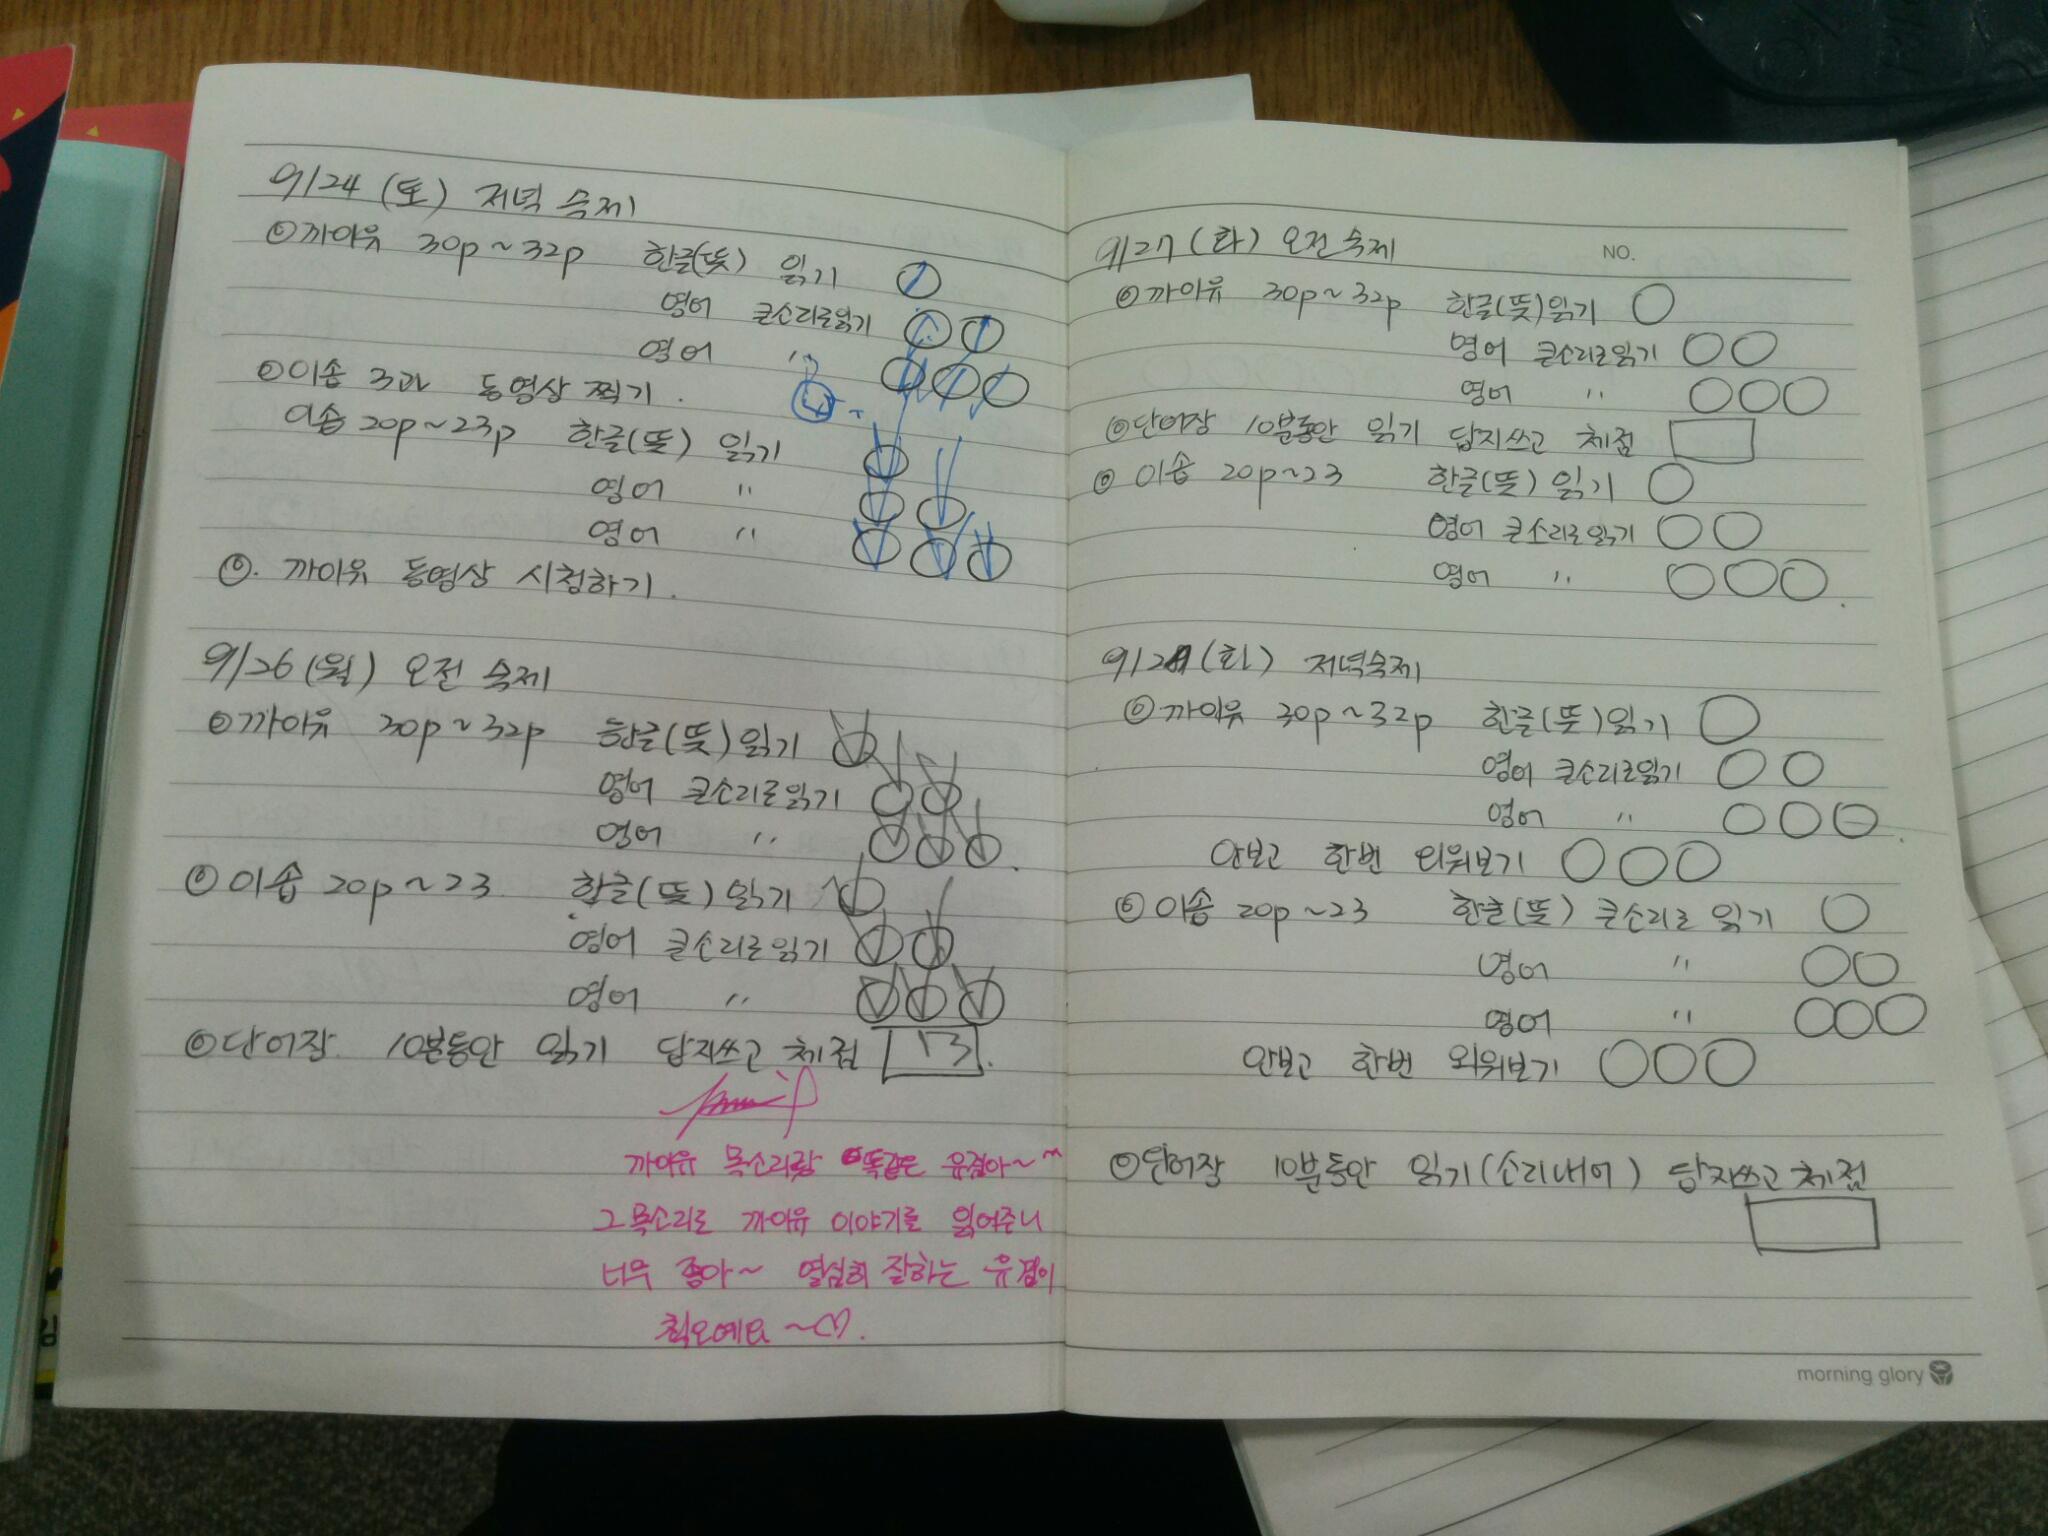 9/24 (토) 저녁 숙제
◎까이유 30p~32p 한글(뜻) 읽기
영어 큰소리로읽기
영어 〃
◎이솝 3과 동영상 찍기.
이솝 20p~23p 한글(뜻) 읽기
영어 〃
영어 〃
◎. 까이유 동영상 시청하기.
9/26(월) 오전 숙제
◎까이유 30p~32p 한글(뜻)읽기
영어 큰소리로읽기
영어 〃
◎이솝 20p~23 한글(뜻)읽기
영어 큰소리로읽기
영어 〃
◎단어장 10분동안 읽기 답지쓰고 체점 13
까이유 목소리랑 똑같은 유겸아~
그 목소리로 까이유 이야기를 읽어주니
너무 좋아~ 열심히 잘하는 유겸이
최고예요~♡.
NO.
9/27(화) 오전숙제
◎까이유 30p~32p 한글(뜻)읽기
영어 큰소리로읽기
영어 〃
◎단어장 10분동안 읽기 답지쓰고 체점
◎이솝 20p~23 한글(뜻)읽기
영어 큰소리로읽기
영어 〃
9/27(화) 저녁숙제
◎까이유 30p~32p 한글(뜻)읽기
영어 큰소리로읽기
영어 〃
안보고 한번 외워보기
◎이솝 20p~23 한글(뜻) 큰소리로 읽기
영어 〃
영어 〃
안보고 한번 외워보기
◎단어장 10분동안 읽기(소리내어) 답지쓰고 체점
morning glory